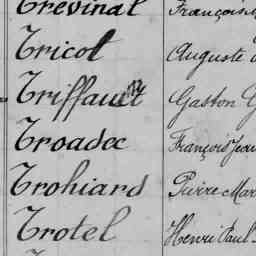 Trévinal François
Tricot Auguste
Triffault Gaston
Troadec François Jean
Trohiard Pierre Mar
Trotel Henri Paul